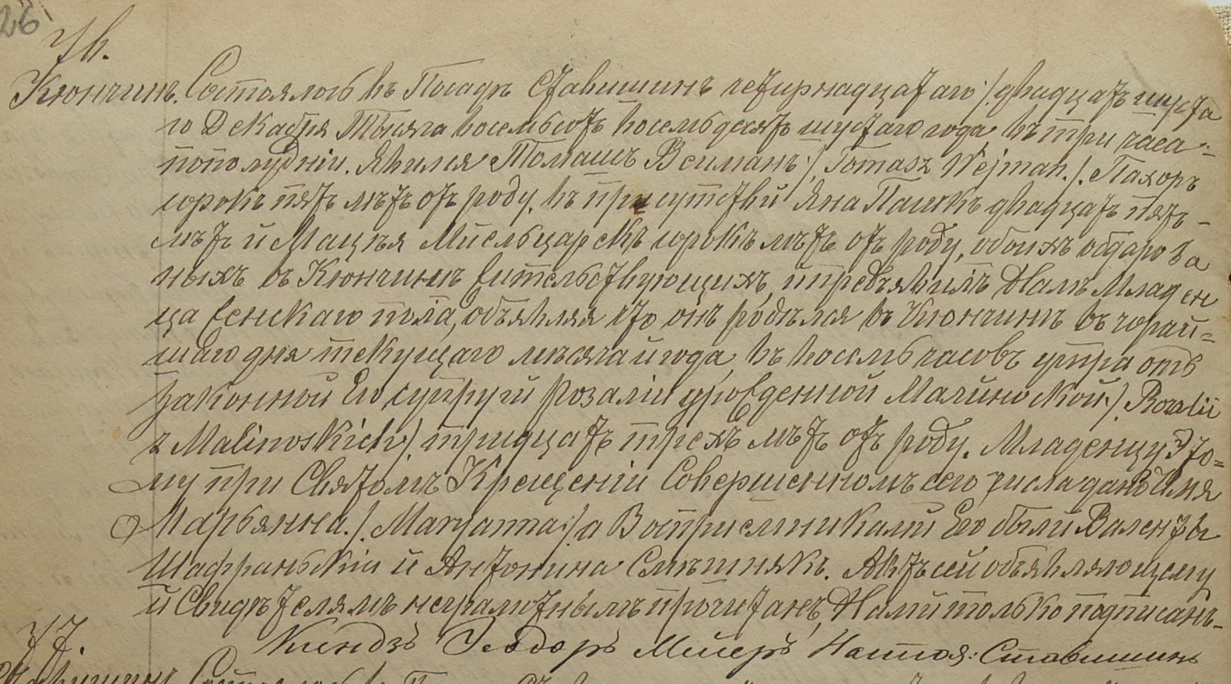 26
76.
Кюнчинъ. Состоялось въ Посадѣ Ставишинѣ четирнадцатаго /: двадцать шеста
го Декабря Тысяча восемьсотъ восемьдесятъ шестаго года въ три часа
пополудніи. Явился Томашъ Вейманъ /: Tomasz Wejman :/. Пахоръ
сорокъ пять лѣтъ отъ роду, въ присутствіи Яна Пашкъ двадцать пять
лѣтъ и Мацѣя сорокъ лѣтъ отъ роду, обоихъ
ныхъ въ Кюнчинѣ жительствующихъ, и предъявилъ Намъ Младен
ца Женскаго пола, объявляя что онъ родился въ Кюнчинѣ вчорай=
шаго дня текущаго мѣсяца и года, въ восемь часовъ утра отъ
Законной Его супруги Розаліи урожденной Малиновской /: Rozalii
z Malinoskich :/ тридцать трехъ лѣтъ отъ роду. Младенцу Это=
му при Святомъ Крещеніи Совершенномъ сего числа дано Имя
Марьянна /: Maryanna :/ а Восприемниками Его были Валенты
Шафраньскій и Антонина Смѣшнякъ. Актъ сей объявляющему
и Свидѣтелямъ неграмотнымъ прочитанъ, Нами только подписанъ.
Ксендзъ Теодоръ Мейеръ Настоя: Ставишинъ
77.